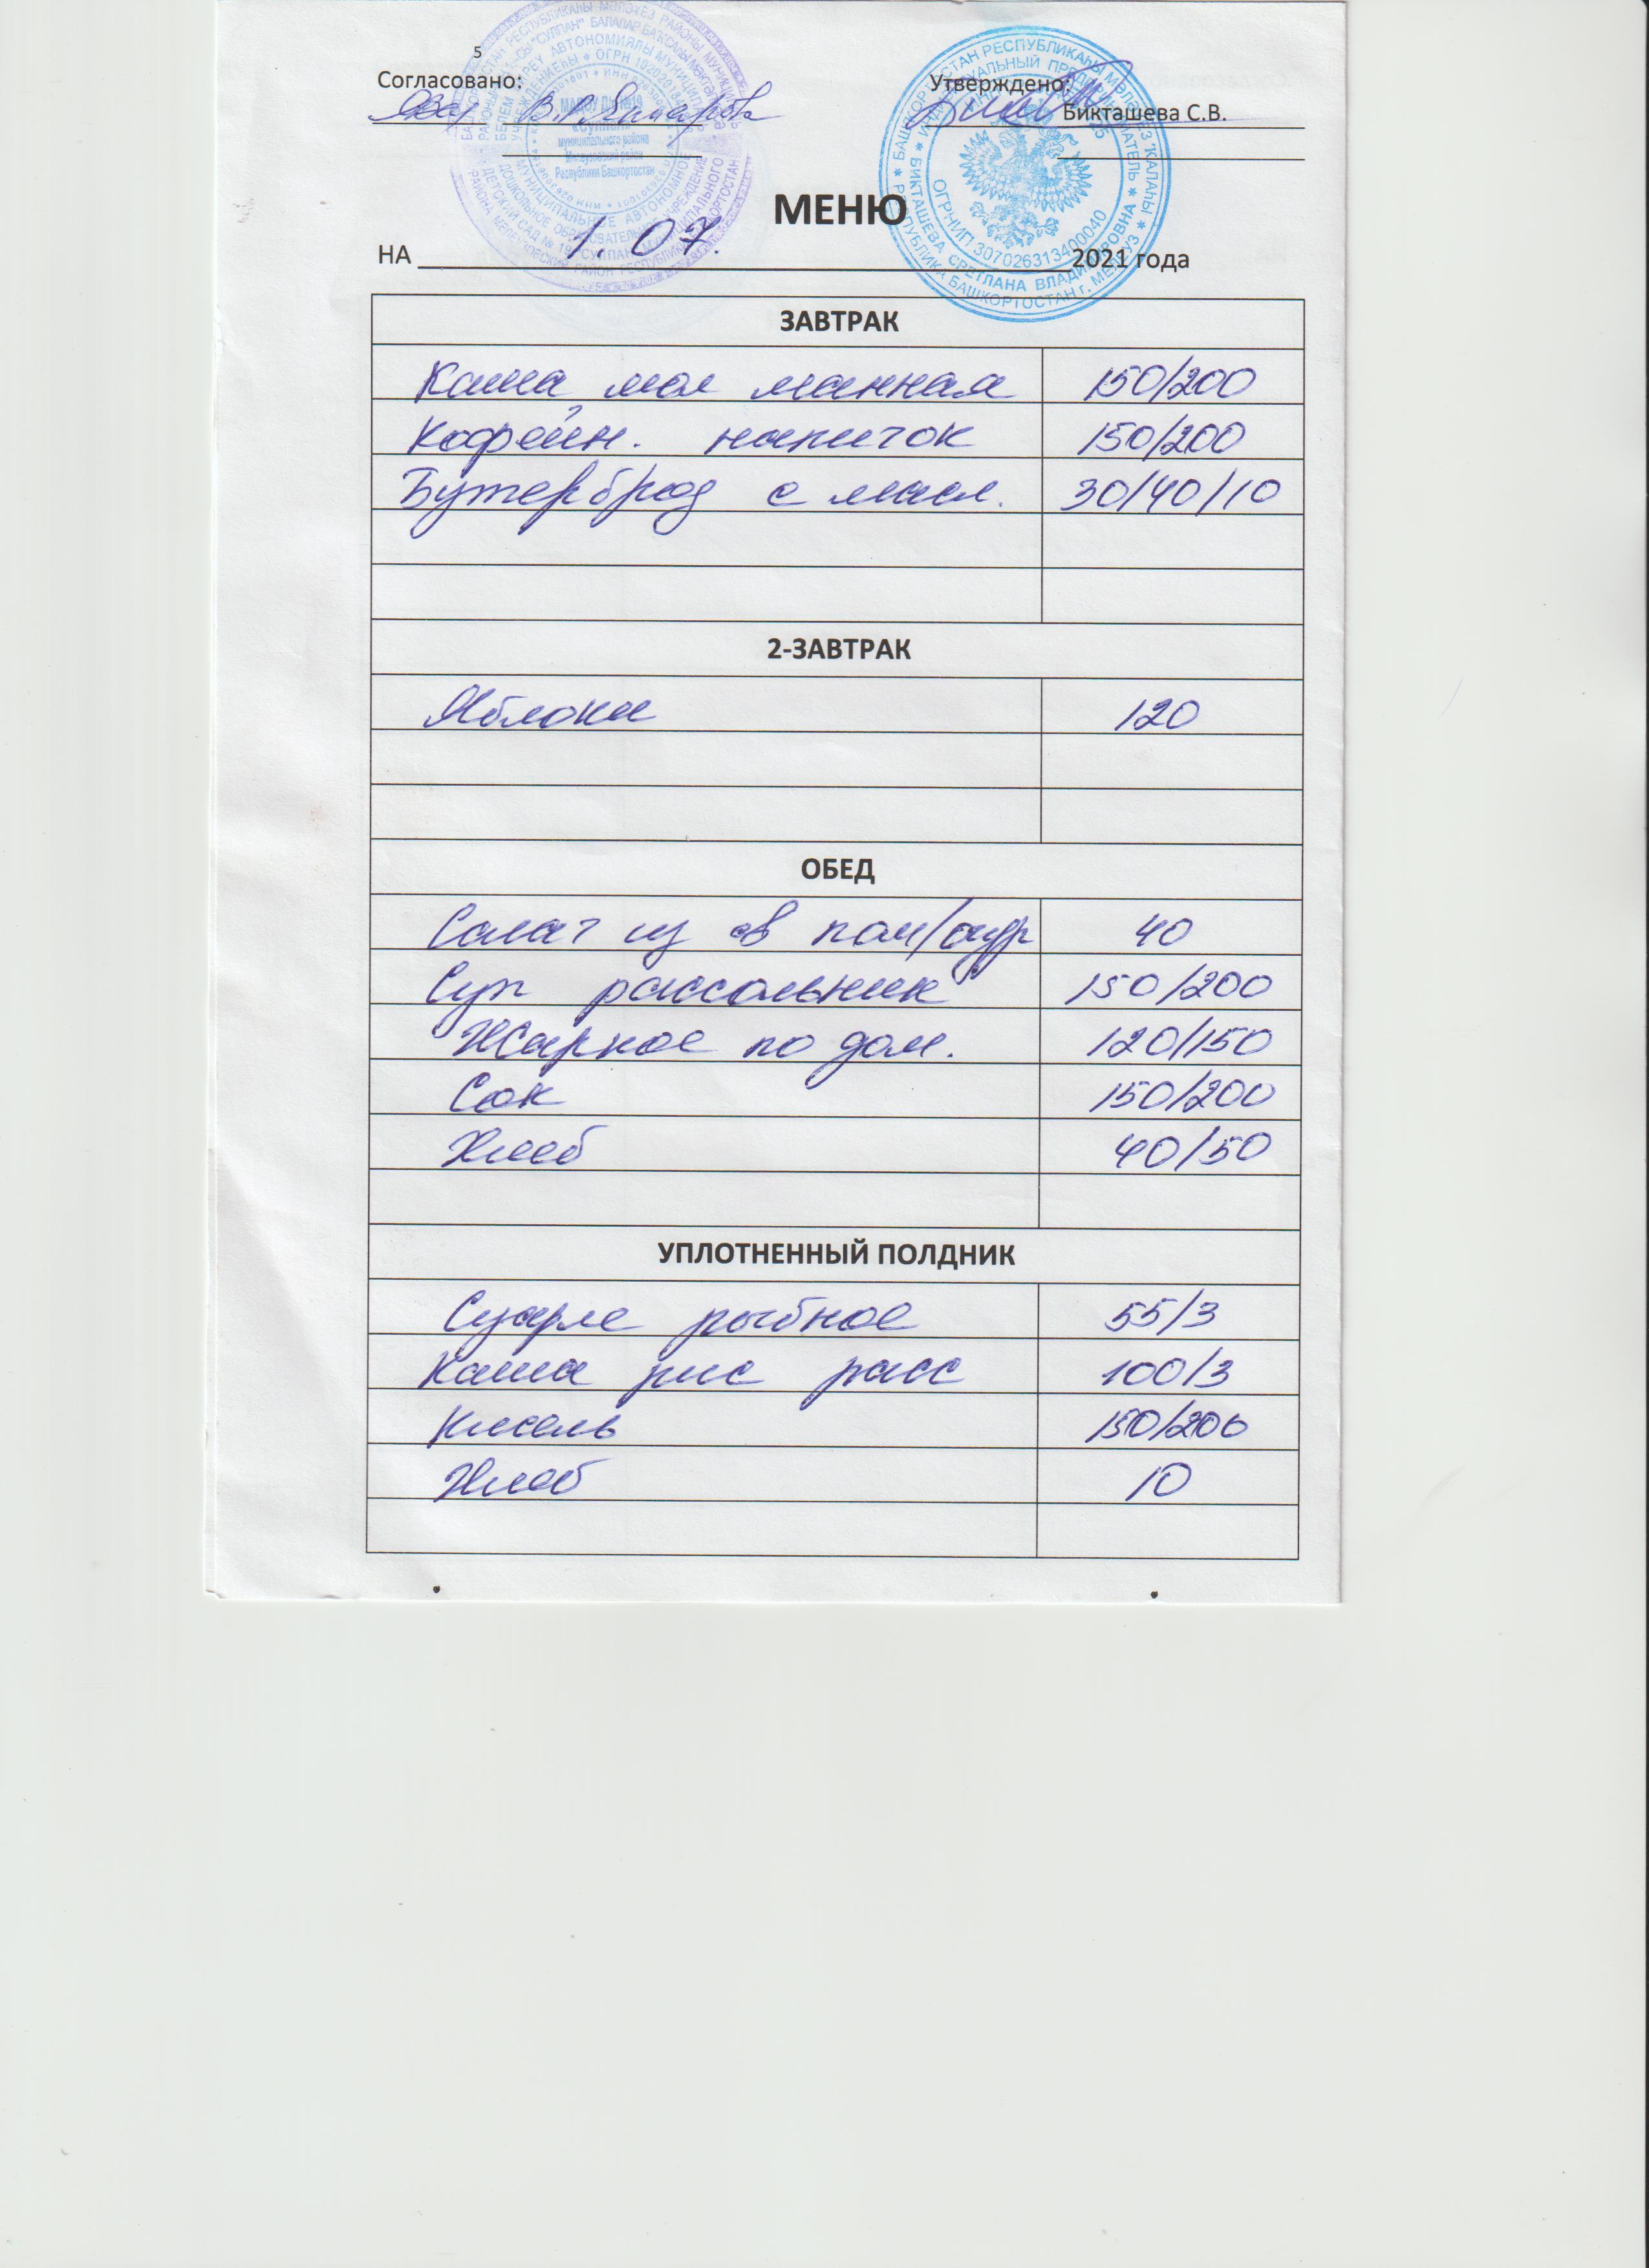 5
Согласовано:
Утверждено:
Бикташева С.В.
МЕНЮ
НА 1.07. 2021 года
ЗАВТРАК
Каша мол манная 150/200
Кофейн. напиток 150/200
Бутерброд с масл. 30/40/10
2-ЗАВТРАК
Яблоки 120
ОБЕД
Салат из св пом/огур 40
Суп рассольник 150/200
Жаркое по дом. 120/150
Сок 150/200
Хлеб 40/50
УПЛОТНЕННЫЙ ПОЛДНИК
Суфле рыбное 55/3
Каша рис расс 100/3
Кисель 150/200
Хлеб 10